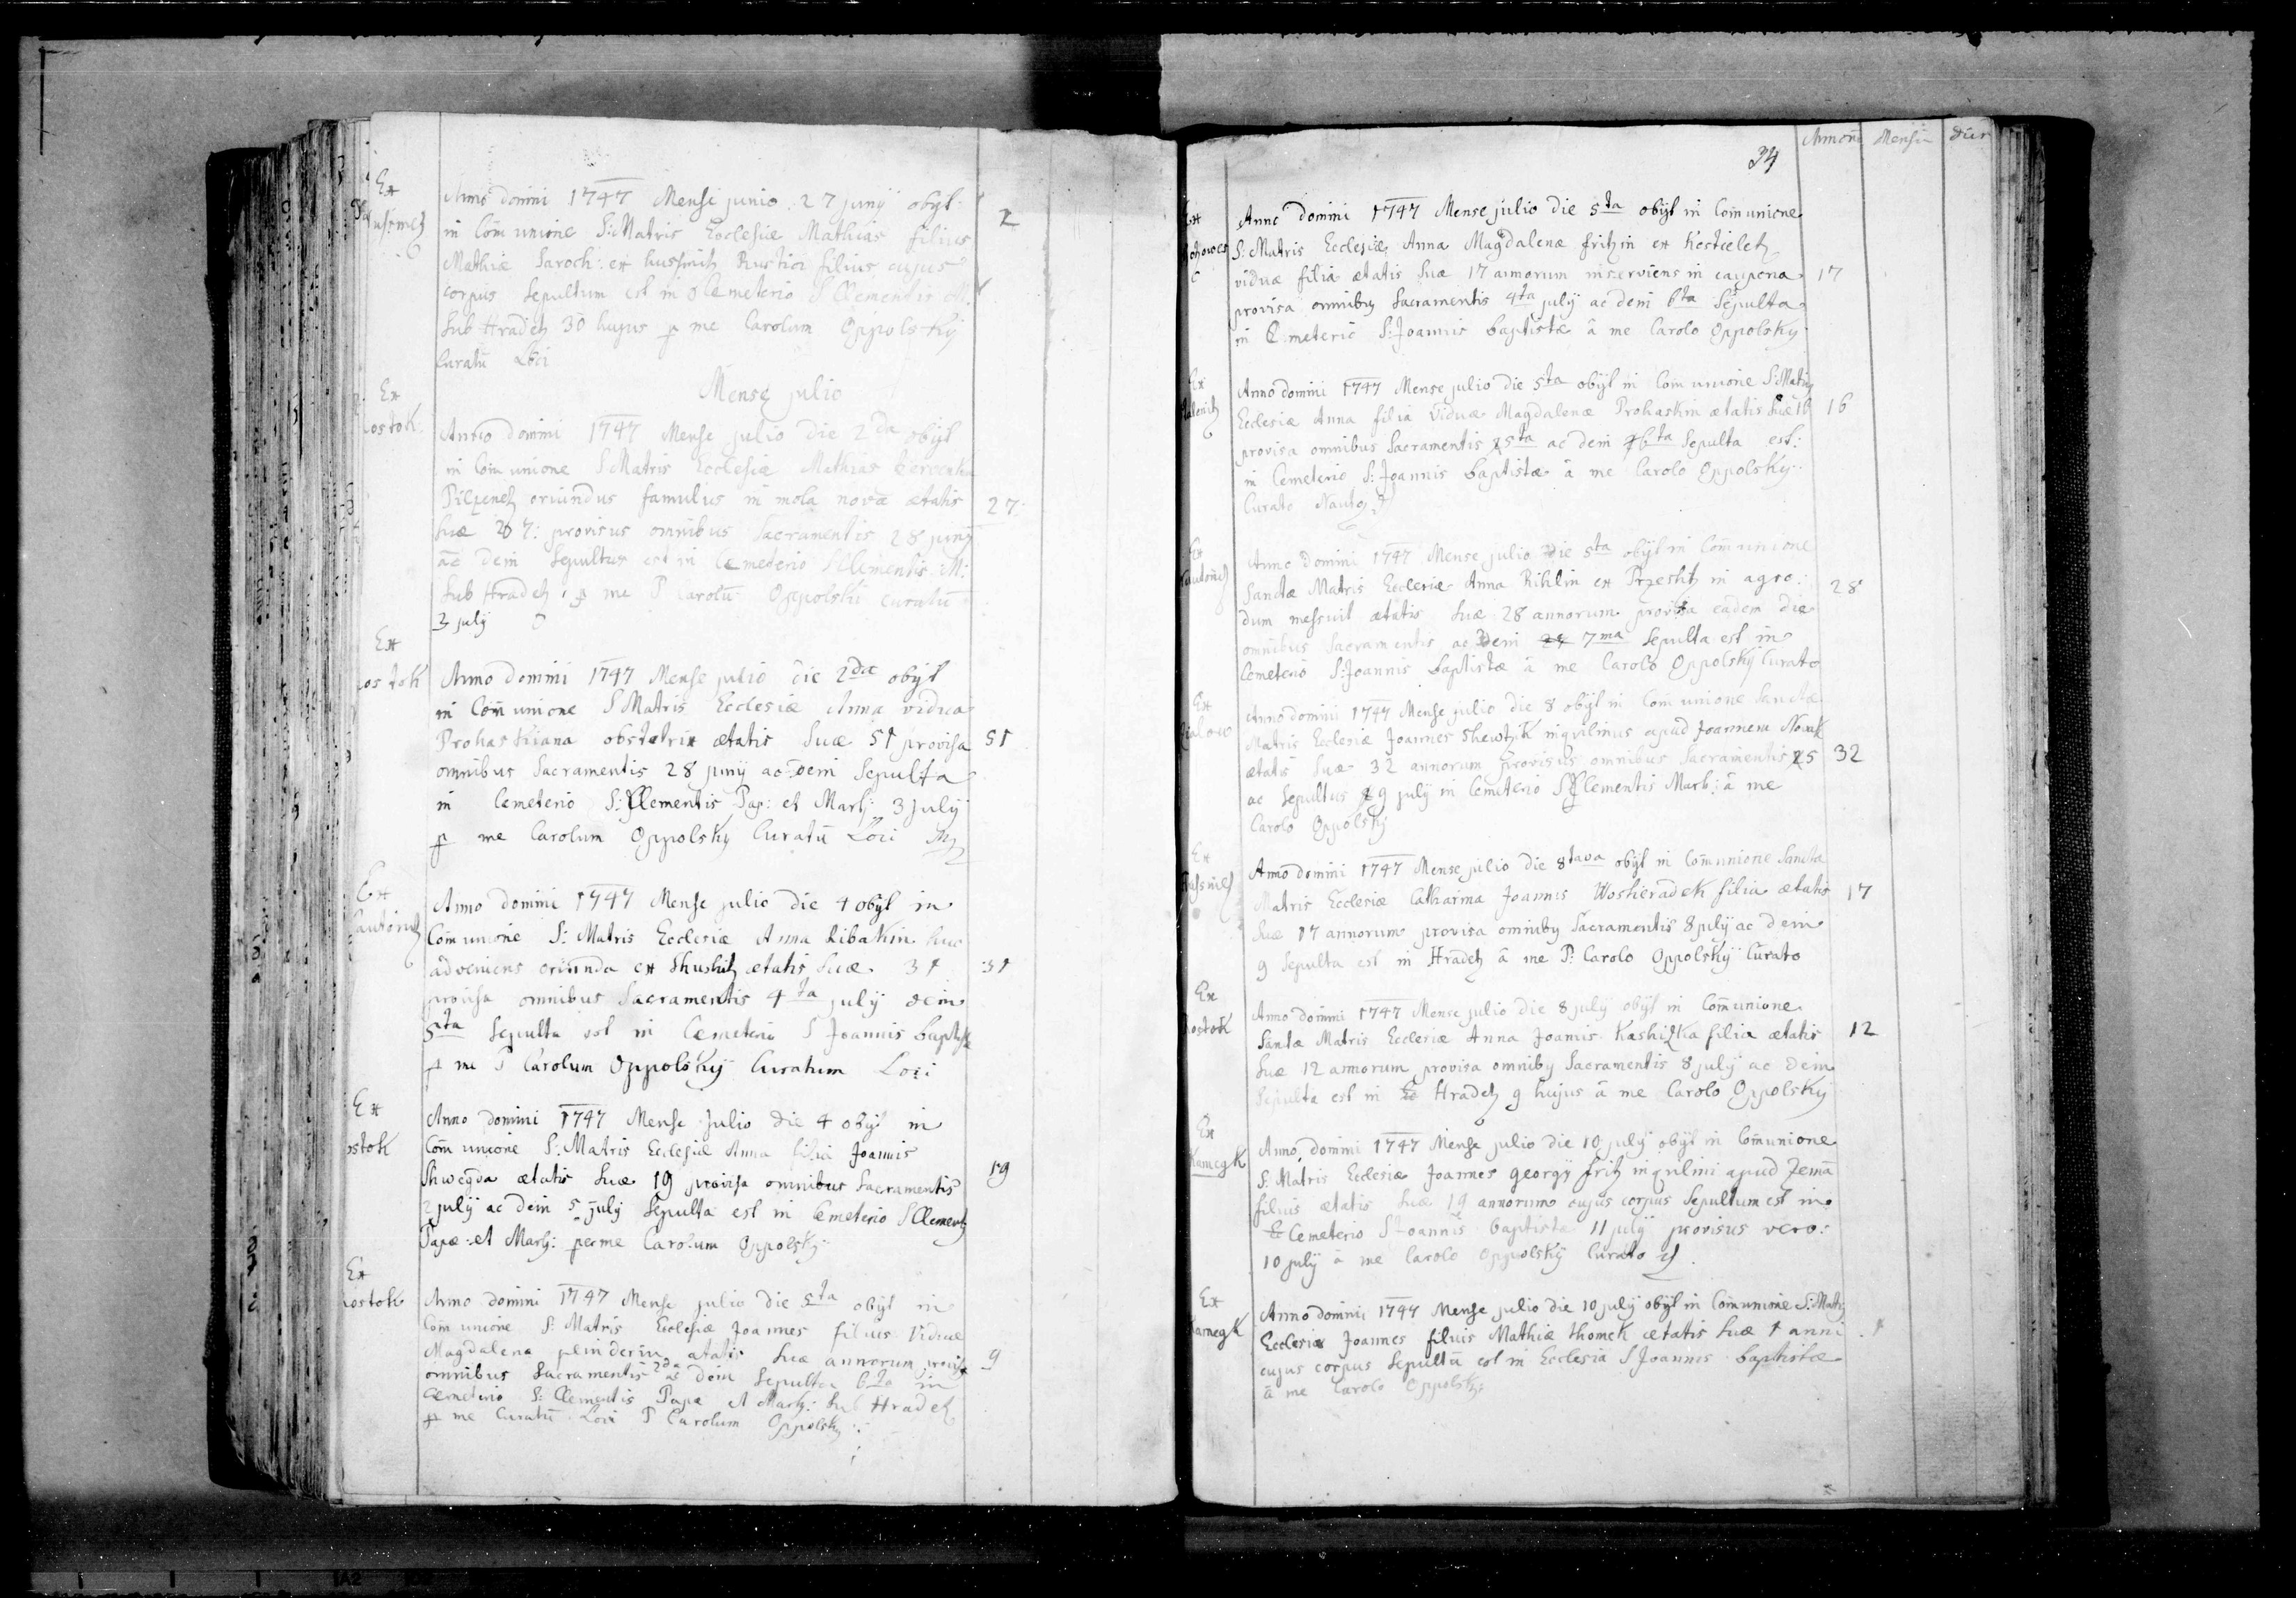 Ex
Anno domini 1747 Mense junio 27 junÿ obÿt
in Com̄unione S: Matris Ecclesiæ Mathias filius
Mathiæ Saroch: ex husſinetz Rustici filius cujus
corpus Sepultum est in Cemeterio S Clementis M.
Sub Hradetz 30 hujus p me Carolum Oppolskÿ
Curatū Loci
2
Mense julio
Ex
ostok
Anno domini 1747 Mense julio die 2da obÿt
in Com̄unione S Matris Ecclesiæ Mathias
oriundus famulus in mola nova ætatis
Suæ 27: provisus omnibus Sacramentis 28 junÿ
ac dein Sepultus est in Cemeterio S Clementis M:
Sub Hradetz p me P Carolū Oppolski curatū
3 julÿ
27
Ex
ostok
Anno domini 1747 Mense julio die 2da obÿt
in Com̄unione S Matris Ecclesiæ Anna vidua
Prohaskiana obstetrix ætatis Suæ 51 provisa
omnibus Sacramentis 28 junÿ ac dein Sepulta
in Cemeterio S: Clementis Pap: et Mart: 3 julÿ
p me Carolum Oppolskÿ Curatū Loci
51
Ex
Anno domini 1747 Mense julio die 4 obÿt in
Com̄unione S: Matris Ecclesiæ Anna Ribakin huc
adveniens oriunda ex Shushitz ætatis Suæ 31
provisa omnibus Sacramentis 4ta julÿ dein
5ta Sepulta est in Cemeterio S Joannis baptistæ
p me P Carolum Oppolskÿ Curatum Loci
31
Ex
ostok
Anno domini 1747 Mense Julio die 4 obÿt in
Com̄unione S: Matris Ecclesiæ Anna filia Joannis
ætatis Suæ 19 provisa omnibus Sacramentis
2 julÿ ac dein 5 julÿ Sepulta est in Cemeterio S Clementis
Papæ et Mart: per me Carolum Oppolskÿ
19
Ex
ostok
Anno domini 1747 Mense julio die 5ta obÿt in
Com̄unione S: Matris Ecclesiæ Joannes filius Viduæ
Magdalena ætatis Suæ annorum provisa
omnibus Sacramentis 2da ac dein Sepulta 6ta in
Cemeterio S: Clementis Papæ et Mart: Sub Hradetz
p me Curatū Loci P Carolum Oppolskÿ
9
34
Annorū Mensiū Dier
Ex
Anno domini 1747 Mense julio die 5ta obÿt in Com̄unione
S: Matris Ecclesiæ Anna Magdalenæ fritzin ex Kostieletz
viduæ filia ætatis Suæ 17 annorum inserviens in caupona
provisa omnibus Sacramentis 4ta julÿ ac dein 6ta Sepulta
in Cemeterio S: Joannis baptistæ â me Carolo Oppolskÿ
17
Ex
Anno domini 1747 Mense julio die 5ta obÿt in Com̄unione S: Matris
Ecclesiæ Anna filia Viduæ Magdalenæ Prohaskin ætatis Suæ 16
provisa omnibus Sacramentis 5ta ac dein 6ta Sepulta est:
in Cemeterio S: Joannis baptistæ â me Carolo Oppolskÿ
Curato
16
Ex
Anno Domini 1747 Mense julio Die 5ta obÿt in Com̄unione
Sanctæ Matris Ecclesiæ Anna Rihlin ex Przeshtz in agro:
dum messuit ætatis Suæ 28 annorum provisa eadem die
omnibus Sacramentis ac Dein 7ma Sepulta est in
Cemeterio S: Joannis baptistæ â me Carolo Oppolskÿ Curato
28
Ex
Anno domini 1747 Mense julio die 8 obÿt in Com̄unione Sanctæ
Matris Ecclesiæ Joannes Shewtzik inqvilinus apud Joannem Novak
ætatis Suæ 32 annorum provisus omnibus Sacramentis 5
ac Sepultus 9 julÿ in Cemeterio S Clementis Mart: â me
Carolo Oppolskÿ
32
Ex
Anno domini 1747 Mense julio die 8tava obÿt in Com̄unione Sanctæ
Matris Ecclesiæ Catharina Joannis Wosheradek filia ætatis
Suæ 17 annorum provisa omnibus Sacramentis 8 julÿ ac dein
9 Sepulta est in Hradetz â me P: Carolo Oppolskÿ Curato
17
Ex
Rostok
Anno domini 1747 Mense julio die 8 julÿ obÿt in Com̄unione
Sanctæ Matris Ecclesiæ Anna Joannis Kashizka filia ætatis
Suæ 12 annorum provisa omnibus Sacramentis 8 julÿ ac dein
Sepulta est in Hradetz 9 hujus â me Carolo Oppolskÿ
12
Ex
Kamegk
Anno domini 1747 Mense julio die 10 julÿ obÿt in Com̄unione
S: Matris Ecclesiæ Joannes georgÿ fritz inqvilini apud Zemā
filius ætatis Suæ 19 annorum cujus corpus Sepultum est in
Cemeterio S Joannis baptistæ 11 julÿ provisus vero:
10 julÿ â me Carolo Oppolskÿ Curato
Ex
Kamegk
Anno domini 1747 Mense julio die 10 julÿ obÿt in Com̄unione S: Matris
Ecclesiæ Joannes filius Mathiæ thomek ætatis Suæ 1 anni
cujus corpus Sepultū est in Ecclesia S Joannis baptistæ
â me Carolo Oppolskÿ
1